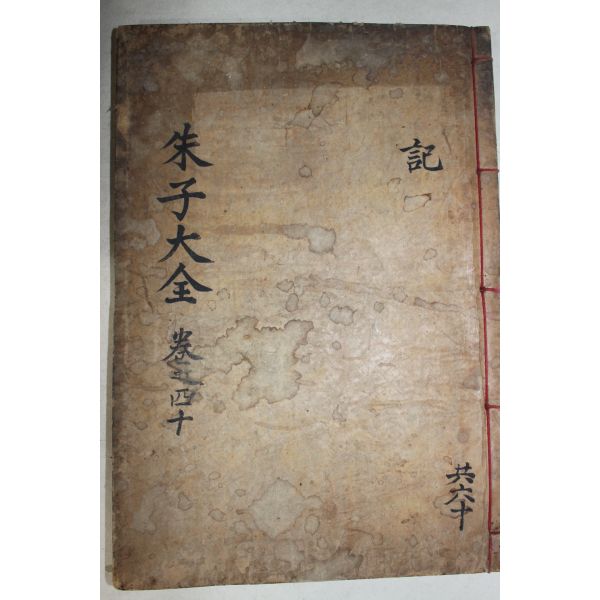 記
共六十
朱子大全 卷之四十